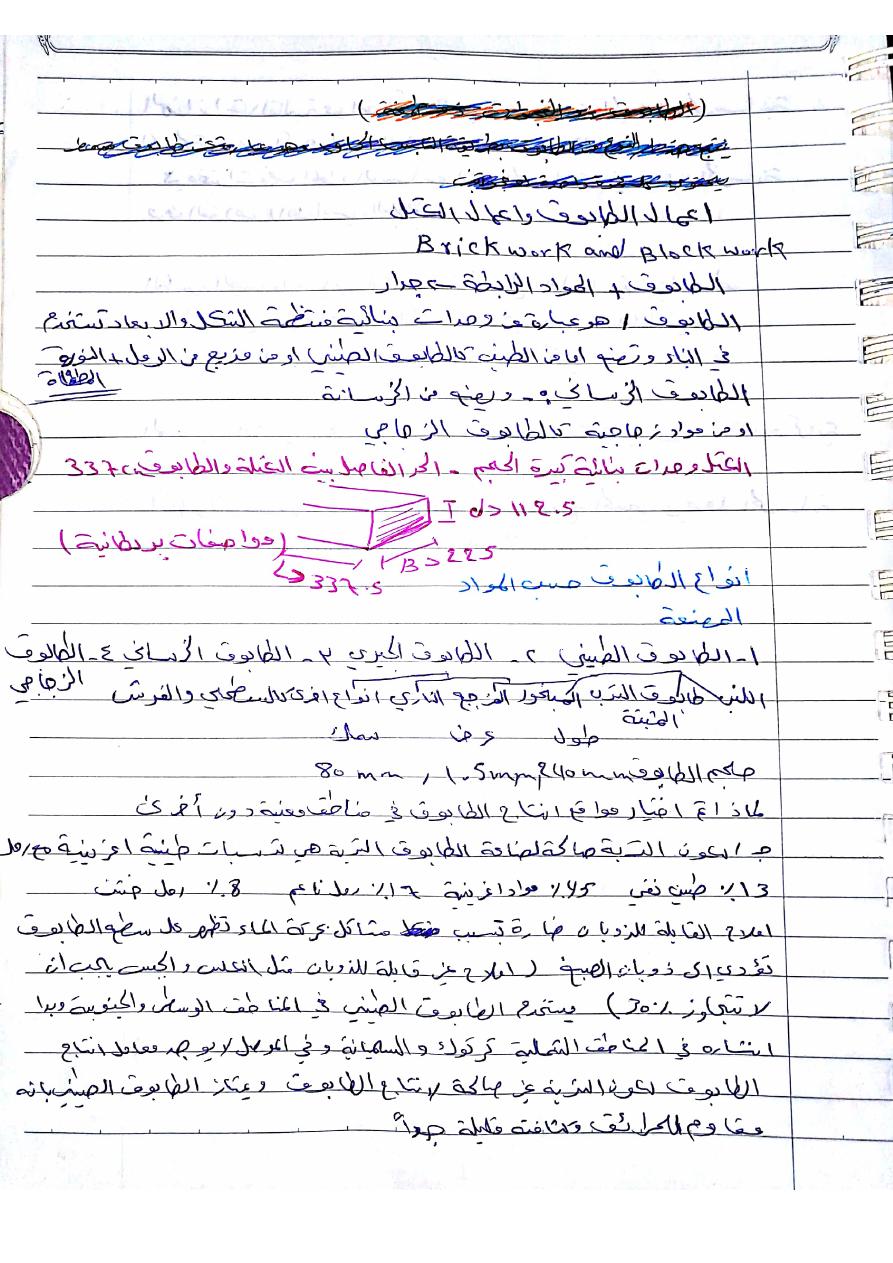 اعمال الطابوق واعمال الكتل
Brick work and Block work
الطابوق + المواد الرابطة ← جدار
الطابوق / هو عبارة عن وحدات بنائية منتظمة الشكل والابعاد تستخدم
في البناء وتصنع اما من الطين كالطابوق الطيني او من مزيج من الرمل + النورة
المطفأة
الطابوق الخرساني :- ويصنع من الخرسانة
او من مواد زجاجية كالطابوق الزجاجي
الكتل وحدات بنائية كبيرة الحجم - الحد الفاصل بين الكتلة والطابوق 337
d > 112.5
B > 225
(مواصفات بريطانية)
337.5
انواع الطابوق حسب المواد
المصنعة
1- الطابوق الطيني 2- الطابوق الجيري 3- الطابوق الخرساني 4- الطابوق
الزجاجي
اللبن طابوق التربة المفخور المزجج الناري انواع اخرى كالسطحي والفرش
المثبتة
طول عرض سمك
حجم الطابوق 240 mm 80 mm
لماذا تم اختيار مواقع انتاج الطابوق في مناطق معينة دون أخرى
ج / لكون التربة صالحة لصناعة الطابوق التربة هي ترسبات طينية اغرينية مع رمل
13% طين نقي 45% مواد اغرينية 17% رمل ناعم 8% رمل خشن
املاح القابلة للذوبان ضارة تسبب مشاكل بحركة الماء تظهر على سطح الطابوق
تؤدي الى ذوبان الصبغ ( املاح غير قابلة للذوبان مثل الكلس والجبس يجب ان
لا تتجاوز 30%) يستخدم الطابوق الطيني في المناطق الوسطى والجنوبية وبدا
انتشاره في المناطق الشمالية كركوك والسليمانية وفي الموصل لا يوجد معامل انتاج
الطابوق لكون التربة غير صالحة لانتاج الطابوق ويمتاز الطابوق الطيني بانه
مقاوم للحرائق وكثافته قليلة جداً